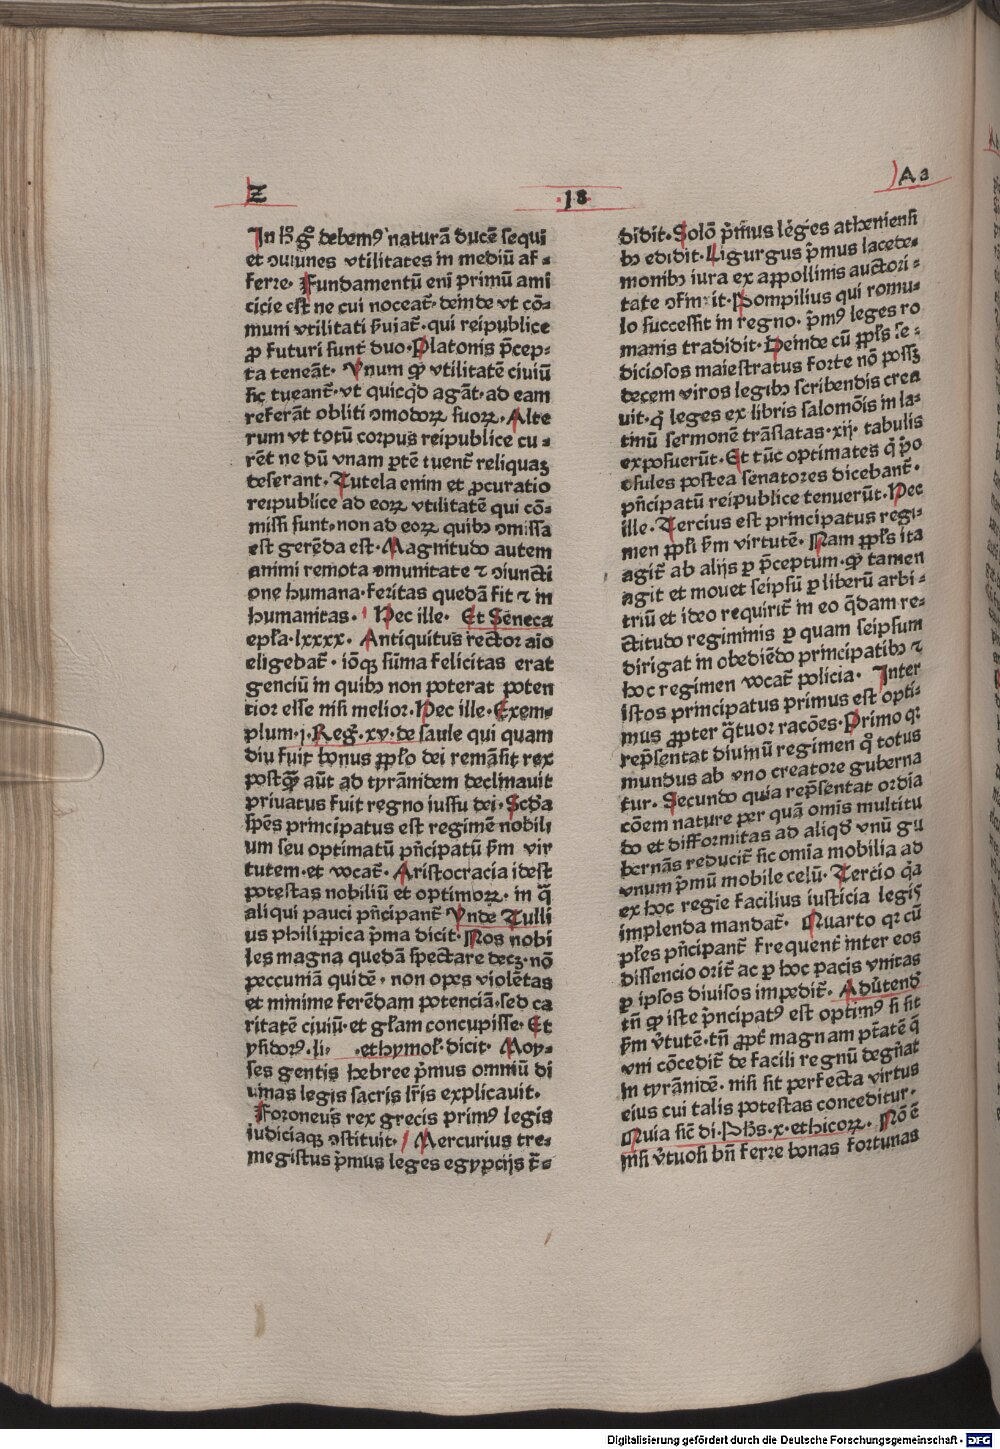 Z
·18·
Aa
In h° g° debem9 naturā ducē sequi
et ɔmunes vtilitates in mediū af⸗
ferre. Fundamentū eni primū ami
cicie est ne cui noceat̄· deinde vt cō⸗
muni vtilitati s̄uiat̄· qui reipublice
ꝓ futuri sunt duo· Platonis p̄cep⸗
ta teneāt· Vnum qꝫ vtilitatē ciuiū
sic tueant̄· vt quicqd̓ agāt· ad eam
referāt obliti ɔmodoꝝ suoꝝ· Alte
rum vt totū corpus reipublice cu⸗
rēt ne dū vnam ꝑtē tuent̄ reliquaꝫ
deserant· Tutela enim et ꝓcuratio
reipublice ad eoꝝ vtilitatē qui cō⸗
missi sunt· non ad eoꝝ quibꝫ ɔmissa
est gerēda est· Magnitudo autem
animi remota ɔmunitate ⁊ ɔiuncti
one humana· feritas quedā fit ⁊ in
humanitas· Hec ille· Et Sēneca
epl̄a·lxxxx· Antiquitus rector aīo
eligebat̄· iōqꝫ sūma felicitas erat
genciū in quibꝫ non poterat poten
tior esse nisi melior· Hec ille· Exem⸗
plum·j·Reg̓·xv·de saule qui quam
diu fuit bonus ꝓpl̄o dei remāsit rex
postqꝫ aūt ad tyrānidem declinauit
priuatus fuit regno iussu dei· Scd̄a
spēs principatus est regimē nobili
um seu optimatū pn̄cipatū s̄m vir
tutem· et vocat̄· Aristocracia idest
potestas nobiliū et optimoꝝ· in q̄
aliqui pauci pn̄cipant̄ Vnde Tulli
us philippica p̄ma dicit· Nos nobi
les magna quedā spectare decꝫ· nō
peccuniā quidē· non opes violētas
et minime ferēdam potenciā· sed ca
ritatē ciuiū· et gl̄am concupisse· Et
ysidor9·li· ·ethymol̄·dicit· Moy⸗
ses gentis hebree p̄mus omniū di
uinas legis sacris lr̄is explicauit·
Foroneus rex grecis prim9 legis
iudiciaqꝫ ɔstituit· Mercurius tre⸗
megistus p̄mus leges egypcijs t̄⸗
didit· Solō p̄mus leges atheniensi
bꝫ edidit· Ligurgus p̄mus lacede⸗
monibꝫ iura ex appollinis auctori⸗
tate ɔfinxit· Pompilius qui romu⸗
lo successit in regno· p̄m9 leges ro
manis tradidit· Deinde cū ꝓpl̄s se⸗
diciosos maiestratus forte nō possꝫ
decem viros legibꝫ scribendis crea
uit· q̄ leges ex libris salomōis in la⸗
tinū sermonē trāslatas·xij· tabulis
exposuerūt· Et tūc optimates q̄ p̄o
ɔsules postea senatores dicebant̄·
pn̄cipatū reipublice tenuerūt· Hec
ille· Tercius est principatus regi⸗
men ꝓpl̄i s̄m virtutē· Nam ꝓpl̄s ita
agit̄ ab alijs ꝑ p̄ceptum· qꝫ tamen
agit et mouet seipsū ꝑ liberū arbi⸗
triū et ideo requirit̄ in eo q̄dam re⸗
ctitudo regiminis ꝑ quam seipsum
dirigat in obediēdo principatibꝫ ⁊
hoc regimen vocat̄ policia· Inter
istos principatus primus est opti⸗
mus ꝓpter q̄tuor racōes· Primo qꝛ
rep̄sentat diuinū regimen q̄ totus
mundus ab vno creatore guberna
tur· Secundo quia rep̄sentat ordīa
cōem nature per quā omīs multitu
do et difformitas ad aliqd̓ vnū gu
bernās reducit̄ sic omīa mobilia ad
vnum p̄mū mobile celū· Tercio q̄a
ex hoc regīe facilius iusticia legis
implenda mandat̄· Quarto qꝛ cū
pl̄es pn̄cipant̄ frequent̄ inter eos
dissencio orit̄ ac ꝑ hoc pacis vnitas
ꝑ ipsos diuisos impedit̄· Adūtend̄
tn̄ qꝫ iste p̄ncipat9 est optim9 si sit
s̄m v̄tutē· tn̄ ꝓpt̄ magnam ptātē q̄
vni cōcedit̄ de facili regnū degn̄at
in tyrānidē· nisi sit perfecta virtus
eius cui talis potestas conceditur·
Quia sic̄ di·Phs·x·ethicoꝝ· Nō ē
nisi v̄tuosi bn̄ ferre bonas fortunas
Digitalisierung gefördert durch die Deutsche Forschungsgemeinschaft - DFG